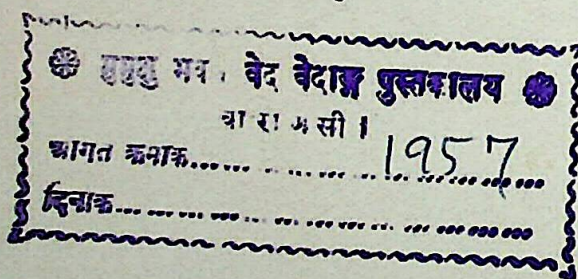 मुमुक्षु भव । वेद वेदाङ्ग पुस्तकालय
वा रा ण सी ।
आगत क्रमाक.......... 1957
दिनाक..........